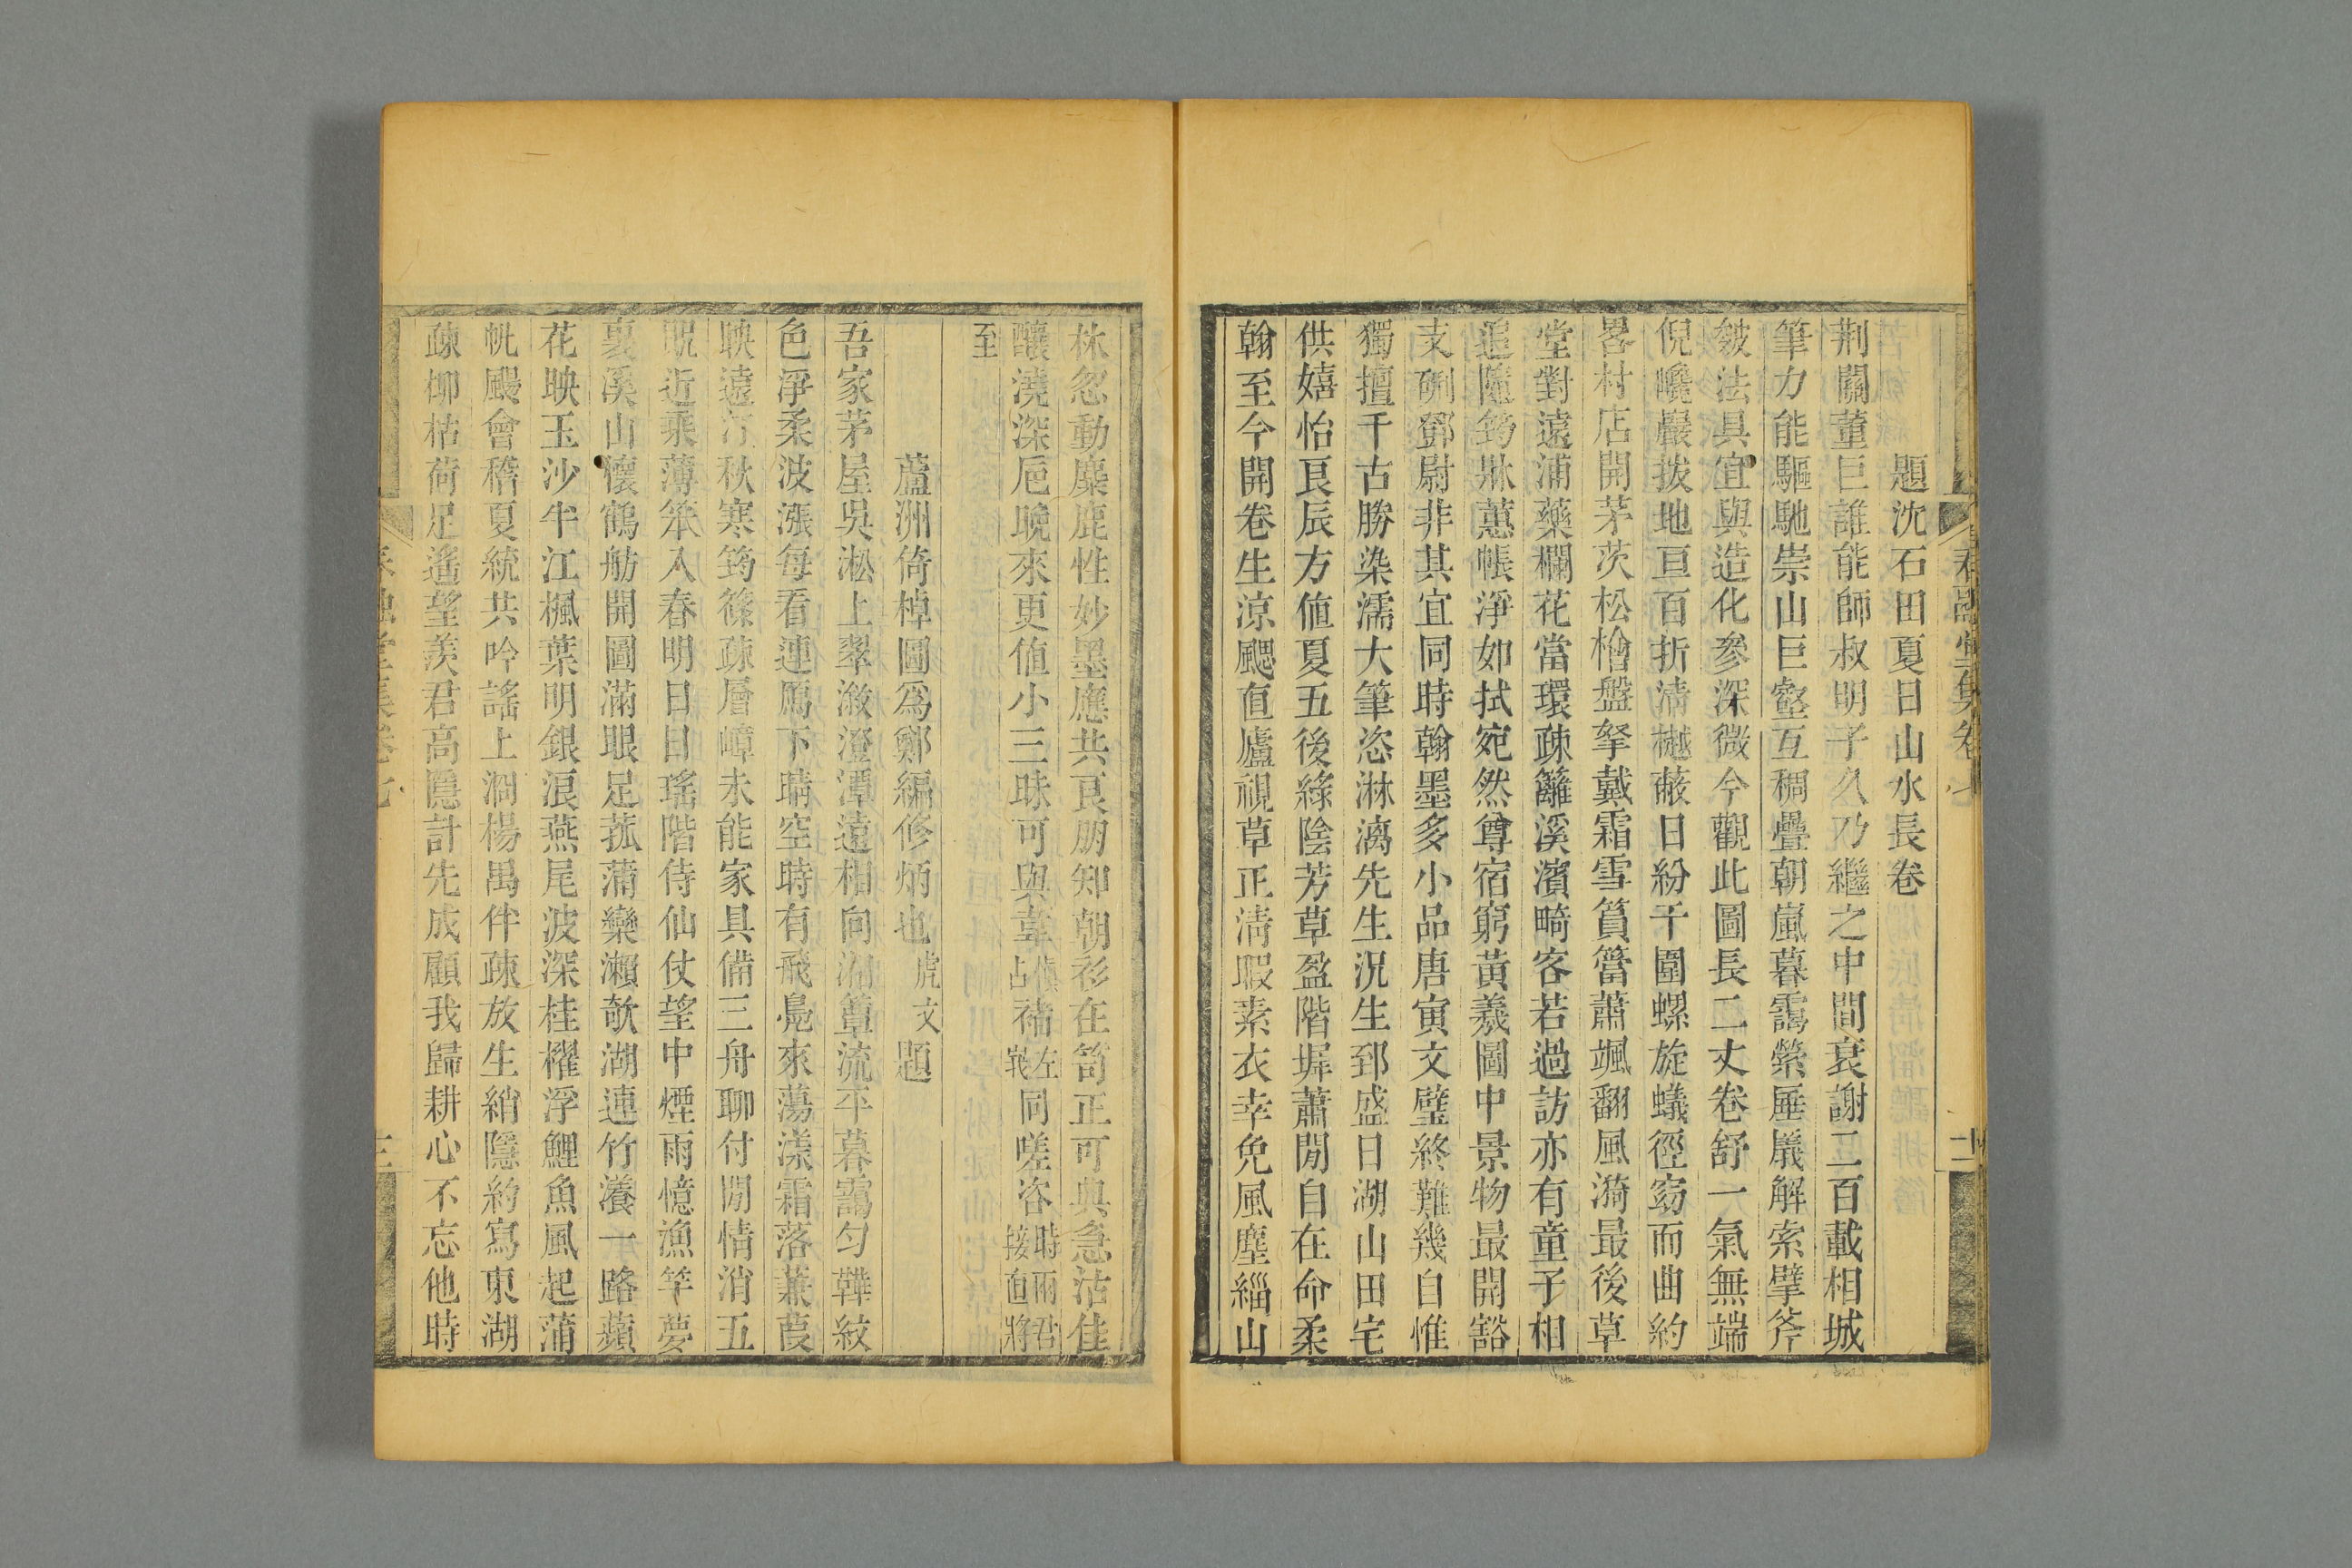 題沈石田夏日山水長卷
荆關董巨誰能師叔明子久乃繼之中間衰謝二百載相城
筆力能驅馳崇山巨壑互稠疊朝嵐暮靄縈厜㕒解索擘斧
皴法具宜與造化參深微今觀此圖長二丈卷舒一氣無端
倪巉巖拔地亘百折清樾蔽日紛千圍螺旋蟻徑窈而曲約
畧村店開茅茨松檜盤拏戴霜雪篔簹蕭颯翻風漪最後草
堂對遠浦藥欄花當環疎籬溪濱畸客若過訪亦有童子相
追隨筠牀蕙帳淨如拭宛然尊宿窮黃羲圖中景物最開豁
支硎鄧尉非其宜同時翰墨多小品唐寅文璧終難幾自惟
獨擅千古勝染濡大筆恣淋漓先生況生郅盛日湖山田宅
供嬉怡艮辰方值夏五後綠陰芳草盈階墀蕭閒自在命柔
翰至今開卷生涼颸直廬視草正清暇素衣幸免風塵緇山
林忽動麋鹿性妙墨應共艮朋知朝衫在笥正可典急沽佳
釀澆深巵晚來更值小三昧可與韋占偵褚左峩同嗟咨時雨君接直將
至
蘆洲倚棹圖爲鄭編修炳也虎文題
吾家茅屋吳淞上翠潋澄潭遠相向湘簟流平暮靄匀鞾紋
色淨柔波漲每看連鴈下晴空時有飛鳧來蕩漾霜落蒹葭
映遠汀秋寒筠篠疎層嶂未能家具備三舟聊付閒情消五
貺近乘薄笨入春明日日瑤階侍仙仗望中煙雨憶漁竿夢
裏溪山懷鶴舫開圖滿眼足菰蒲欒瀨欹湖連竹瀁一路蘋
花映玉沙半江楓葉明銀浪燕尾波深桂櫂浮鯉魚風起蒲
帆颺會稽夏統共吟謠上澗楊禺伴疎放生綃隱約寫東湖
疎柳枯荷足遙望羨君高隱計先成顧我歸耕心不忘他時